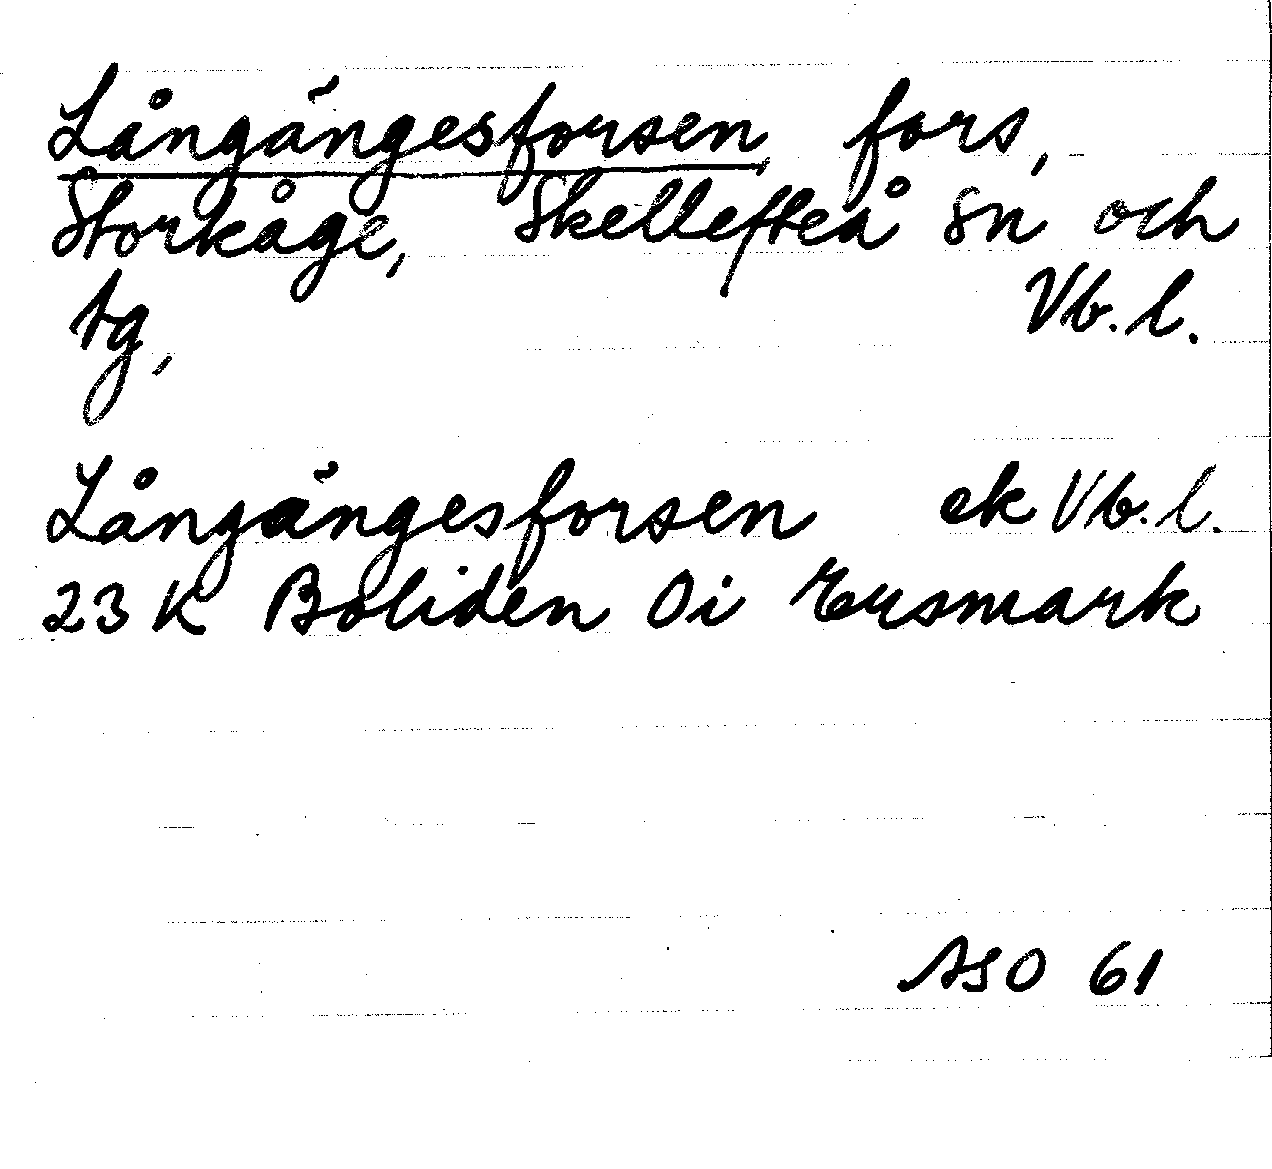 Långängesforsen fors,
Storkåge, Skellefteå sn och
tg, Vb.l.
Långängesforsen ek Vb.l.
23 K Boliden 0i Ersmark
ASO 61